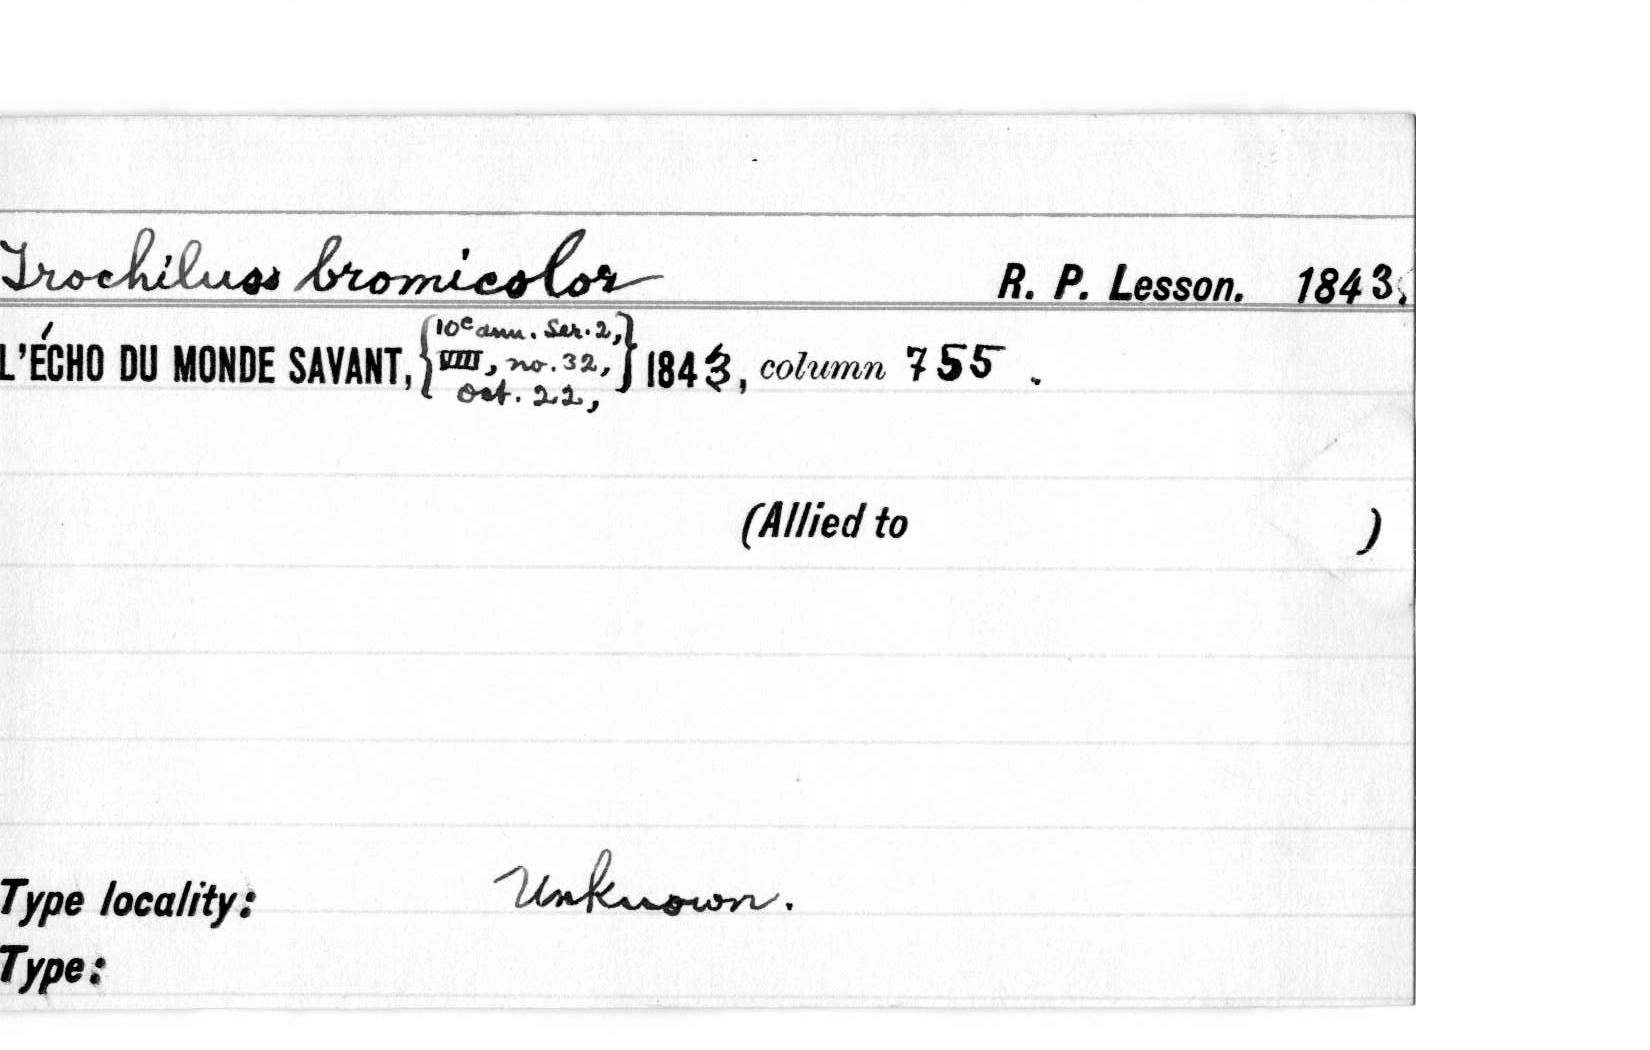 Trochiluss bromicolor R. P. Lesson. 1843.
L'ÉCHO DU MONDE SAVANT, {10e ann. Ser. 2, VIII, no. 32, Oct. 22,} 1843, column 755.
(Allied to )
Type locality: Unknown.
Type: